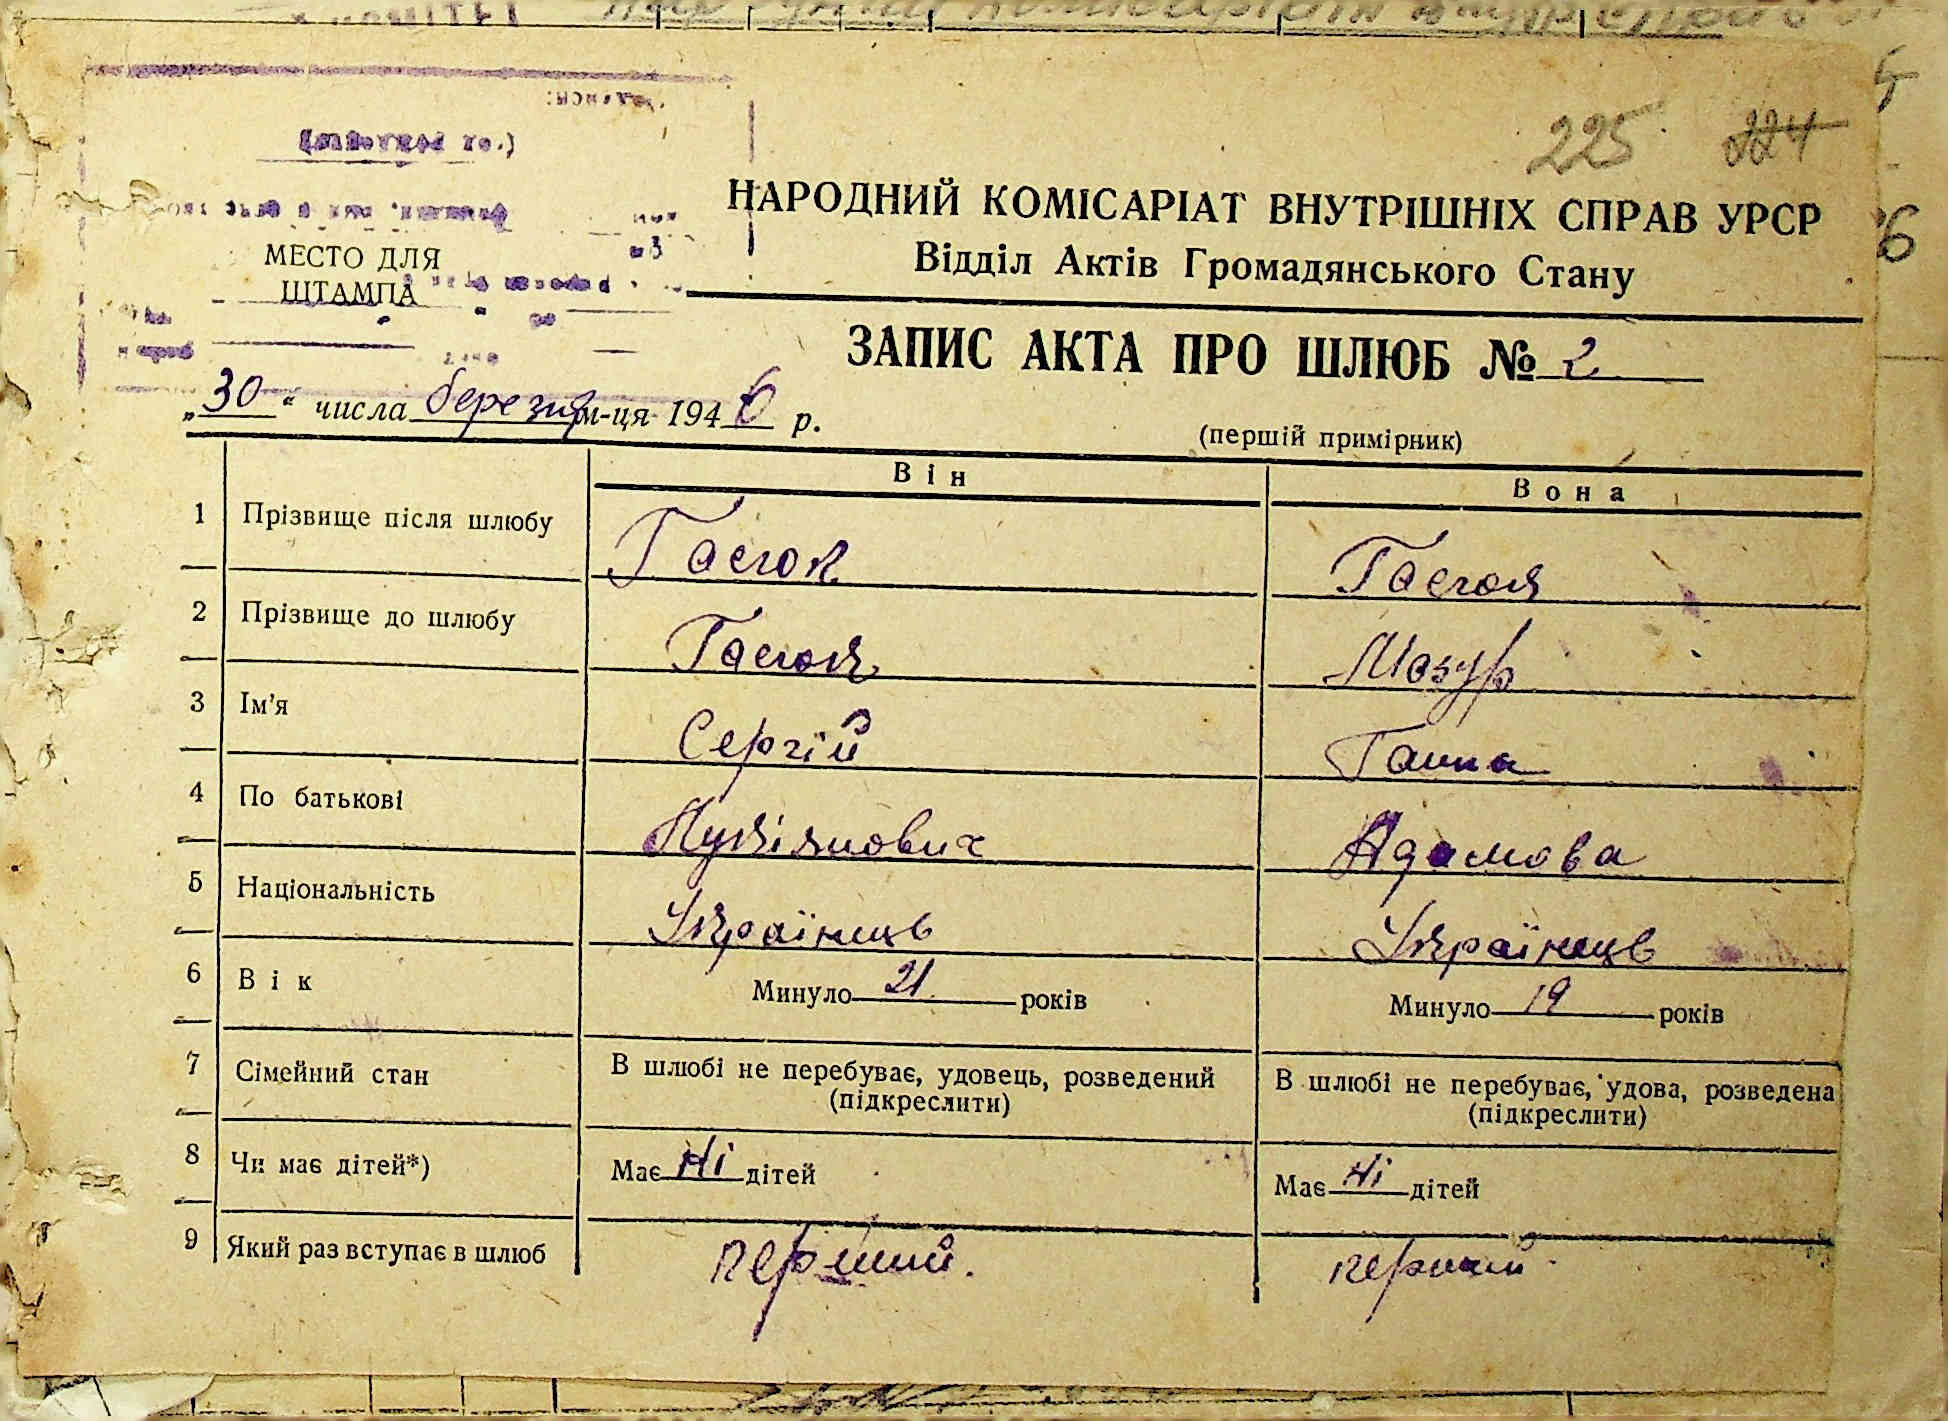 225 224
НАРОДНИЙ КОМІСАРІАТ ВНУТРІШНІХ СПРАВ УРСР
Відділ Актів Громадянського Стану
МЕСТО ДЛЯ
ШТАМПА
ЗАПИС АКТА ПРО ШЛЮБ № 2
„30“ числа березня м-ця 1946 р.
(першій примірник)
Він Вона
1 Прізвище після шлюбу
2 Прізвище до шлюбу Мазур
3 Ім'я Сергій Ганна
4 По батькові Адамова
5 Національність Українець Українець
6 Вік Минуло 21 років Минуло 19 років
7 Сімейний стан В шлюбі не перебуває, удовець, розведений В шлюбі не перебуває, удова, розведена
(підкреслити) (підкреслити)
8 Чи має дітей*) Має Ні дітей Має Ні дітей
9 Який раз вступає в шлюб перший. перший.